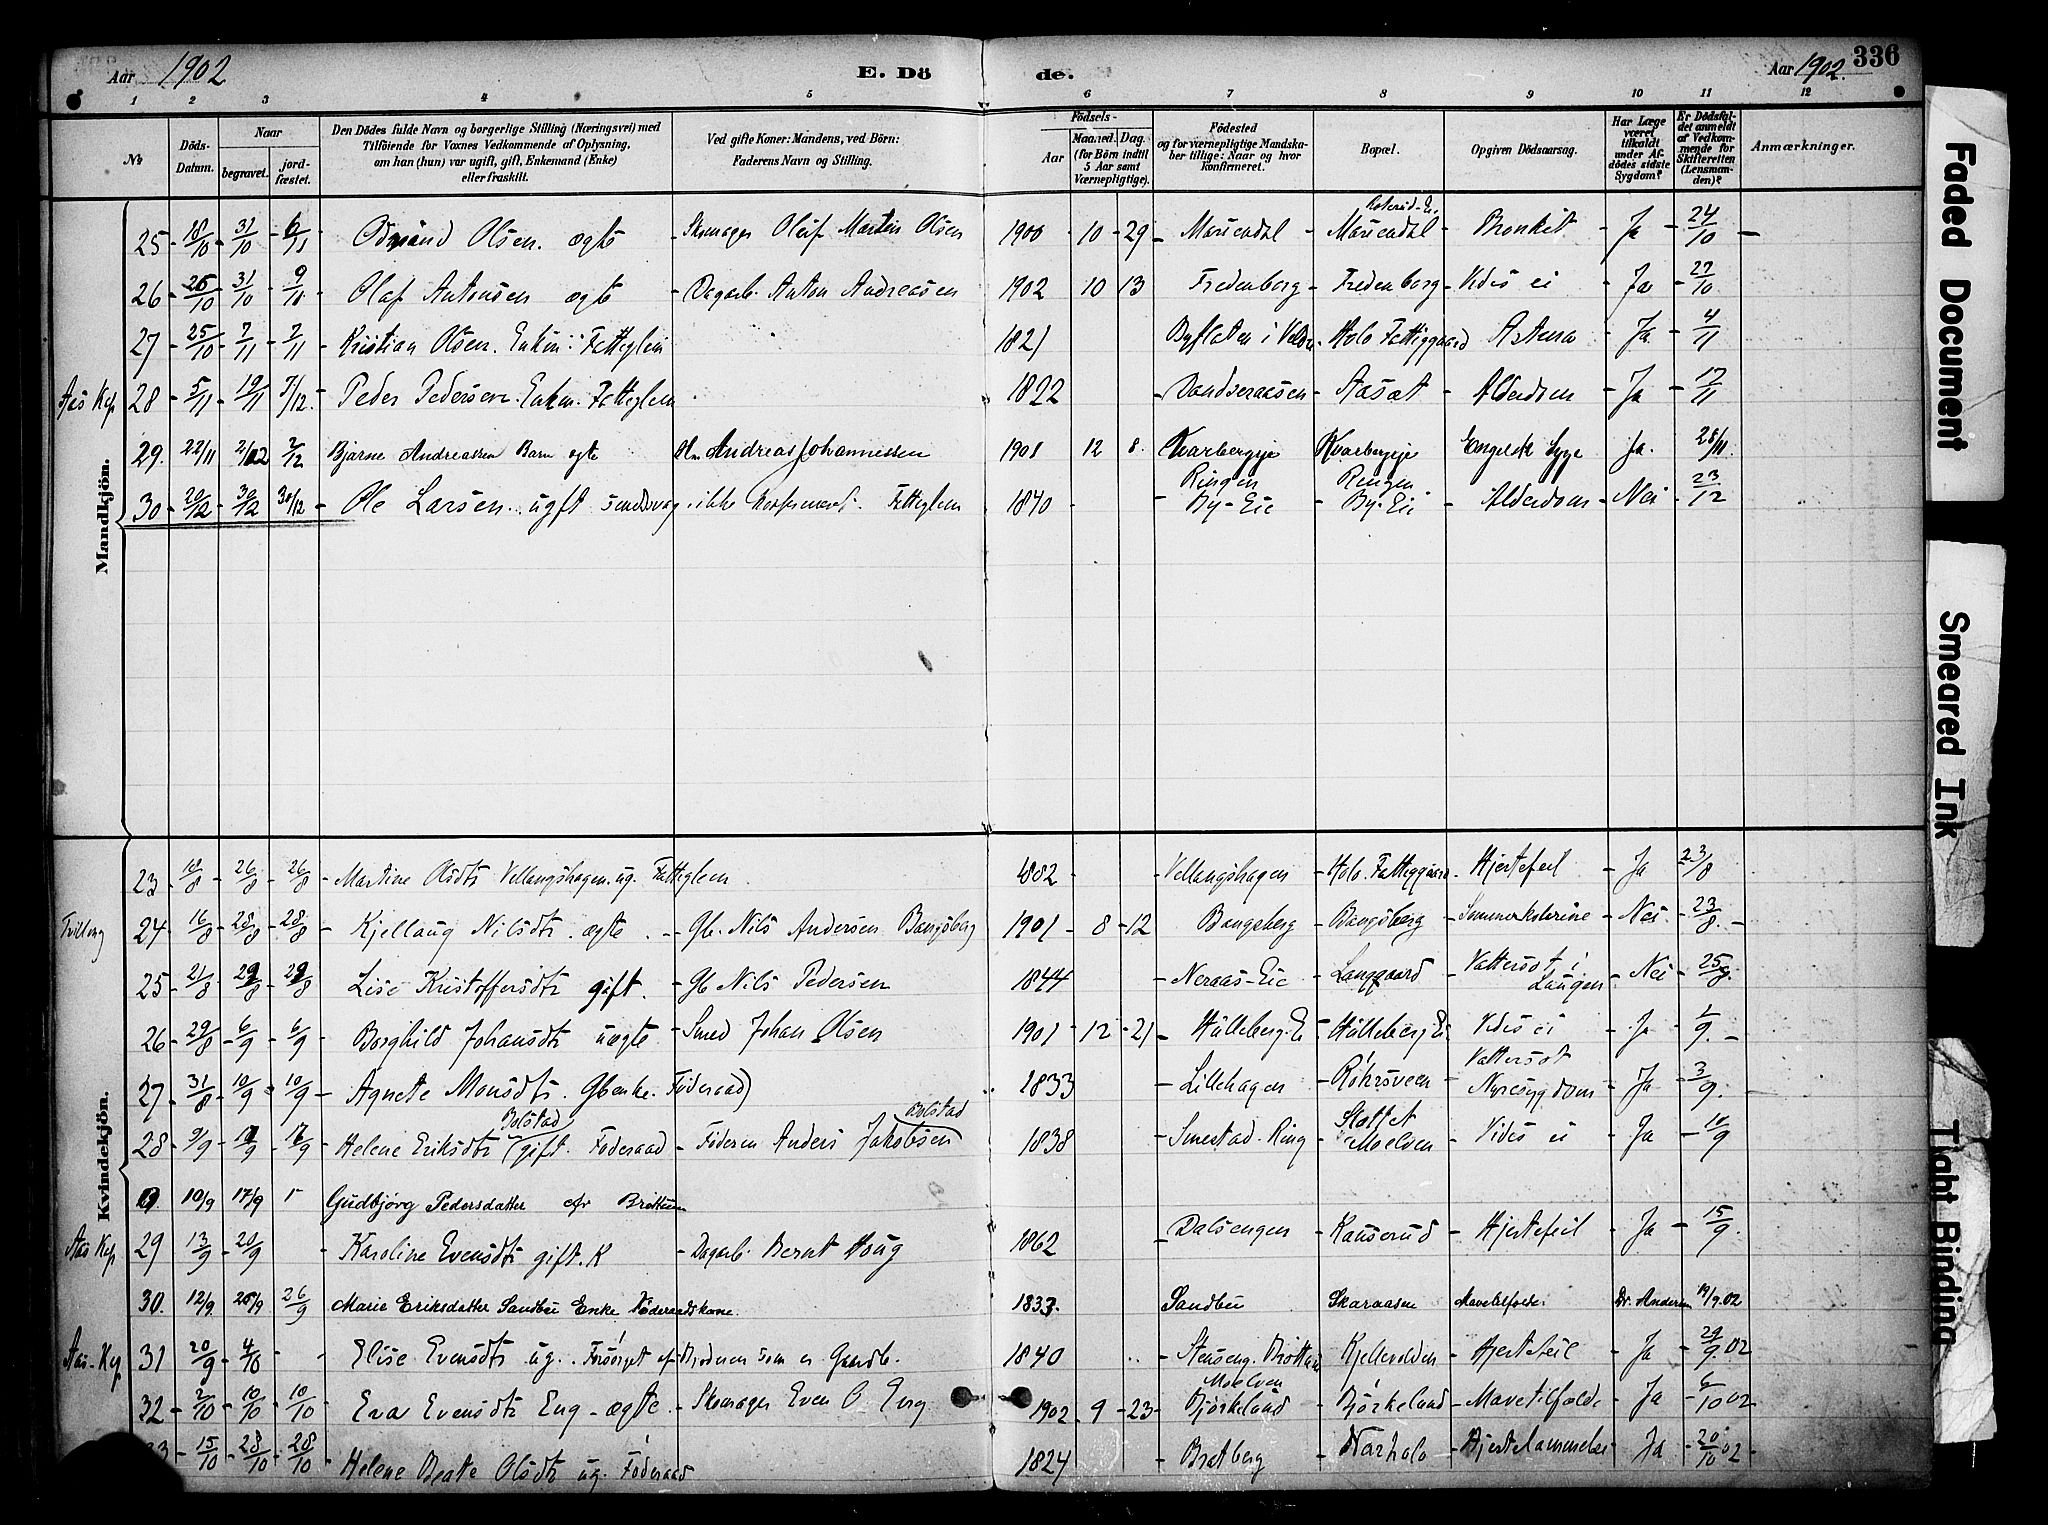 Aar 1902
E. Dö
de.
Aar 1902.
336
1 2 3 4 5 6 7 8 9 10 11 12
No
Döds-Datum.
Naar
begravet.
jord-fæstet.
Den Dödes fulde Navn og borgerlige Stilling (Næringsvei) med
Tilföiende for Voxnes Vedkommende af Oplysning,
om han (hun) var ugift, gift, Enkemand (Enke)
eller fraskilt.
Ved gifte Koner: Mandens, ved Börn:
Faderens Navn og Stilling.
Födsels-
Aar
Maaned. Dag.
(for Börn indtil
5 Aar samt
Værnepligtige).
Födested
og for værnepligtige Mandska-
ber tillige: Naar og hvor
konfirmeret.
Bopæl.
Opgiven Dödsaarsag.
Har Læge
været
tilkaldt
under Af-
dödes sidste
Sygdom?
Er Dödsfal-
det anmeldt
af Vedkom-
mende for
Skifteretten
(Lensman-
den)?
Anmærkninger.
Mandkjön.
25 18/10 31/10 6/11 Olsen. ægte Skomager Oluf Martin Olsen 1900 10 29 Mariendal Mariendal Bronkit Ja 24/10
26 25/10 31/10 9/11 Olaf Antonsen ægte Dagarb. Anton Andreasen 1902 10 13 Fredenborg Fredenborg Vides ei Ja 27/10
27 25/10 7/11 7/11 Kristian Olsen. Enkm. Fattiglem 1821 Holo Fattiggaard Astma Ja 4/11
Aas Kp 28 5/11 19/11 7/12 Peder Pedersen. Enkm. Fattiglem 1822 Aasæt Alderdom Ja 17/11
29. 22/11 2/12 2/12 Bjarne Andreassen Barn ægte Andreas Johannessen 1901 12 8. Kvarbergeje Kvarbergeje Engelsk Syge Ja. 28/11
30 20/12 30/12 30/12 Ole Larsen. ugift sindssvag ikke konfirmeret. Fattiglem 1840 Ringen By-Eie Ringen By-Eie Alderdom Nei 23/12
Kvindekjön.
23 18/8 26/8 26/8 Martine Olsdtr Vellangshagen. ug. Fattiglem 1882 Vellangshagen Holo. Fattiggaard Hjertefeil Ja 23/8
Tvilling 24 16/8 28/8 28/8 Kjellaug Nilsdtr. ægte. Gb. Nils Andersen Bangsberg 1901 8 12 Bangsberg Bangsberg Sommerkolerine Nei 23/8
25 21/8 29/8 29/8 Lise Kristoffersdtr gift. Gb Nils Pedersen 1844 Neraas-Eie Langgaard Vattersot i Laugen Nei 25/8
26 29/8 6/9 6/9 Borghild Johansdtr uægte Smed Johan Olsen 1901 12 21 Hulleberg-Ei Hulleberg Ei Vides ei Ja 1/9.
27 31/8 10/9 10/9 Agnete Monsdtr. Gbenke. Föderaad 1833 Lillehagen Röhrsveen Vattersot Nyresygdom Ja 3/9.
28 9/9 17/9 17/9 Helene Eriksdtr Bolstad gift. Föderaad Föderm Anders Jakobsen Bolstad 1838 Smestad. Ring Slottet Moelven Vides ei Ja 10/9
10/9 17/9 Gudbjörg Pedersdatter
Aas Kp 29 13/9 20/9 Karoline Evensdtr gift. K Dagarb. Bernt Houg 1862 Dalsengen Kauserud Hjertefeil Ja 15/9.
30. 12/9. 26/9 26/9 Marie Eriksdatter Sandbu Enke Föderaadskone. 1833. Sandbu Skaraasen Dr. Andersen 19/9.02
Aas-Kp. 31 20/9 4/10 Elise Evensdtr ug. Forsörget af Broderen som er Gaardb. 1840 Stenseng. Kjellevolden Hjertefeil Ja 29/9.02
32 2/10 10/10 10/10 Eva Evensdtr Eng ægte Skomager Even O. Eng 1902 9 23 Moelven Björkelund Björkelund Ja 6/10 02
15/10 28/10 28/10 Helene Beate Olsdtr ug. Föderaad 1824 Bratberg Narholo Hjertelammelse Ja 20/10 02
Faded Document
Smeared Ink
Tight Binding